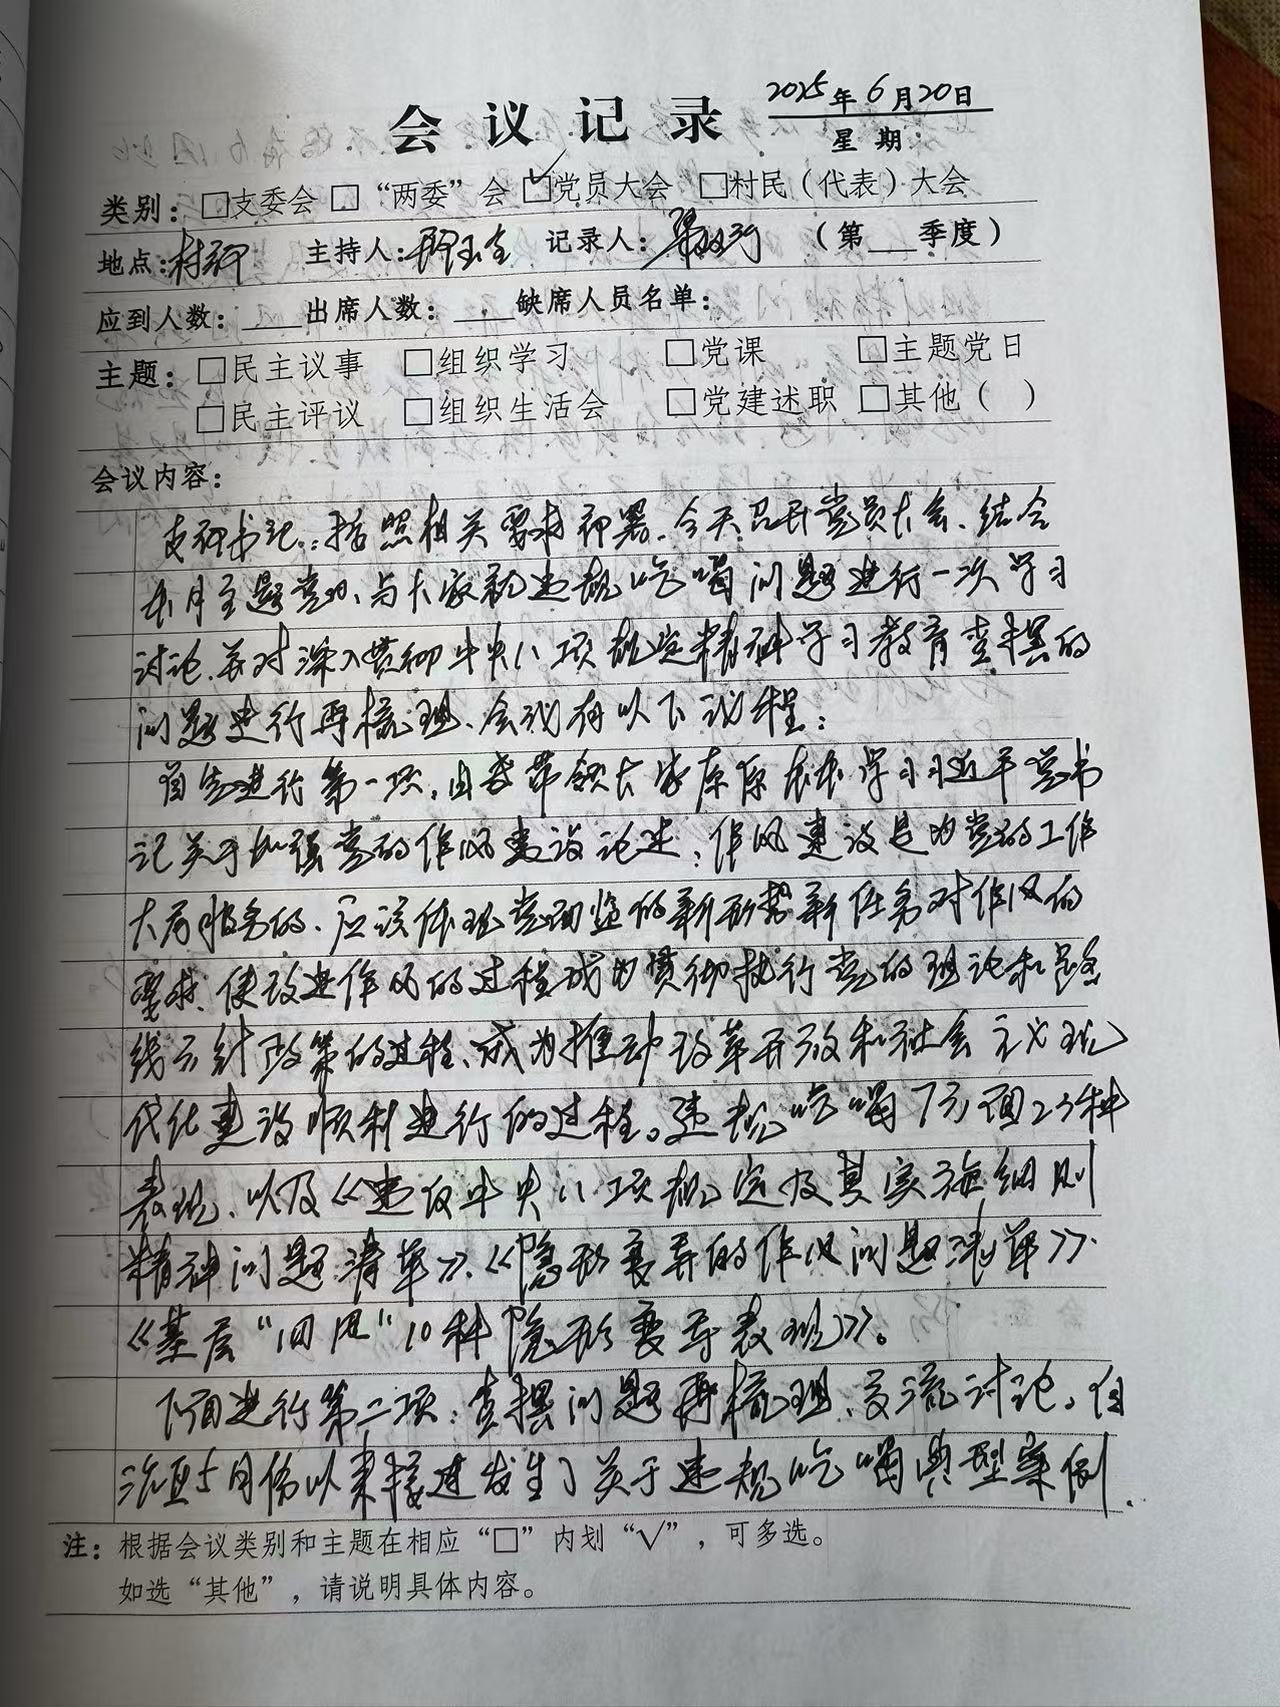 会议记录 2025年6月20日
星期:
类别: □支委会 □“两委”会 ☑党员大会 □村民(代表)大会
地点:村部 主持人: 记录人: (第__季度)
应到人数:___出席人数:___缺席人员名单:
主题: □民主议事 □组织学习 □党课 □主题党日
□民主评议 □组织生活会 □党建述职 □其他( )
会议内容:
支部书记:按照相关要求部署、今天召开党员大会、结合
本月主题党日、与大家就违规吃喝问题进行一次学习
讨论、并对深入贯彻中央八项规定精神学习教育查摆的
问题进行再梳理、会议有以下议程:
首先进行第一项,由我带领大家原原本本学习习近平总书
记关于加强党的作风建设论述:作风建设是为党的工作
大局服务的、应该体现党面临的新形势新任务对作风的
要求、使改进作风的过程成为贯彻执行党的理论和路
线方针政策的过程、成为推动改革开放和社会主义现
代化建设顺利进行的过程。违规吃喝7方面23种
表现、以及《违反中央八项规定及其实施细则
精神问题清单》、《隐形变异的作风问题清单》、
《基层“四风”10种隐形变异表现》。
下面进行第二项:查摆问题再梳理、交流讨论。自
治区5月份以来接连发生了关于违规吃喝典型案例.
注: 根据会议类别和主题在相应“□”内划“√”,可多选。
如选“其他”,请说明具体内容。